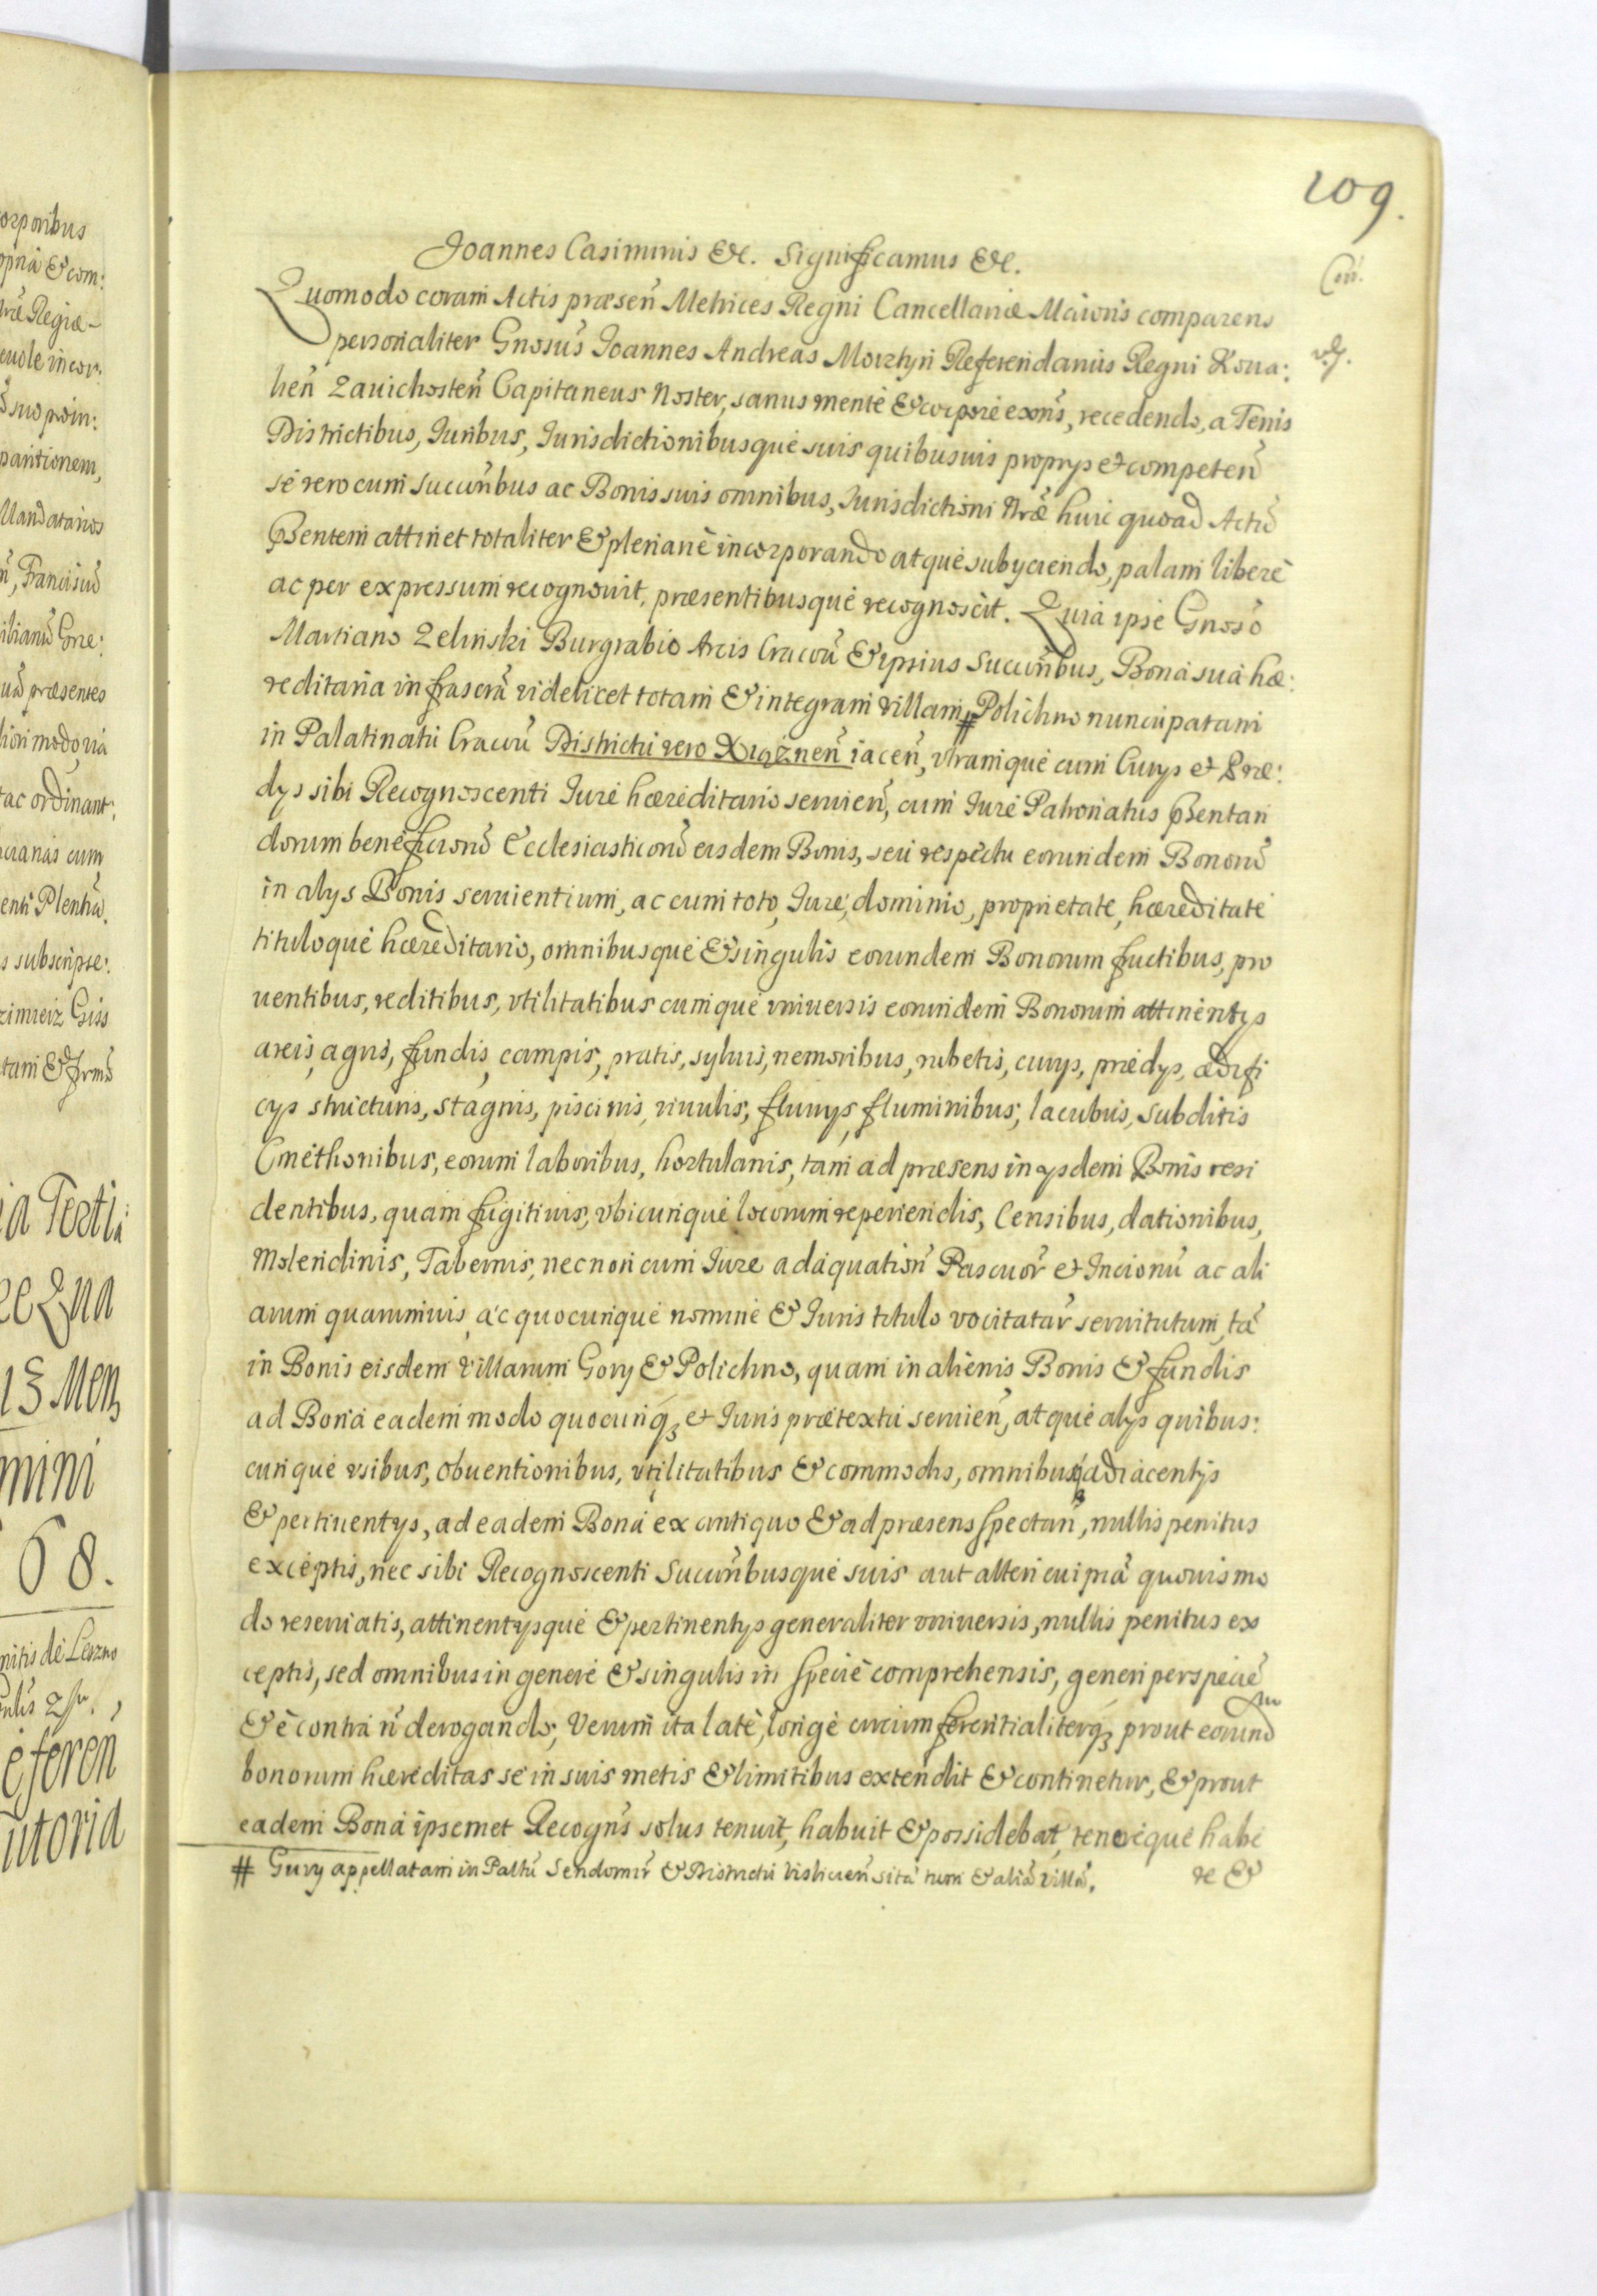 109.
Joannes Casimirus &c. Significamus &c.
Con:
Quomodo coram Actis præsen̄ Metrices Regni Cancellariæ Maioris comparens
personaliter Gnosus Joannes Andreas Morztyn Referendarius Regni Koua:
lien̄ Zauichosten̄ Capitaneus Noster, sanus mente & corpore exn̄s, recedendo, a Terris
Districtibus, Iuribus, Iurisdictionibusque suis quibusuis proprys et competen̄
se vero cum Sucun̄bus ac Bonis suis omnibus, Iurisdictioni Nr̄æ huic quoad Actū
Pn̄tem attinet totaliter & plenarie incorporando atque subyciendo, palam libere
ac per expressum recognouit, præsentibusque recognoscit. Quia ipse Gnoso
Martiano Zelinski Burgrabio Arcis Cracou̅ & ipsius Sucun̄bus, Bona sua hæ:
reditaria infrascr̄a videlicet totam & integram villam # Polichno nuncupatam
in Palatinatu Cracou̅ Districtu vero Xiążnen̄ iacen̄, vtramque cum Curys et Præ:
dys sibi Recognoscenti Iure hæreditario seruien̄, cum Iure Patronatus Pn̄tan
dorum beneficiorū Ecclesiasticorū eisdem Bonis, seu respectu eorundem Bonorū
in alys Bonis seruientium, ac cum toto, Iure, dominio, proprietate, hæreditate
tituloque hæreditario, omnibusque & singulis eorundem Bonorum fructibus, pro
uentibus, reditibus, vtilitatibus cumque vniuersis eorundem Bonorum attinentys
areis, agris, fundis, campis, pratis, syluis, nemoribus, rubetis, curys, prædys, ædifi
cys structuris, stagnis, piscinis, riuulis, fluuys, fluminibus, lacubus, subditis
Cmethonibus, eorum laboribus, hortulanis, tam ad præsens in ysdem Bonis resi
dentibus, quam fugitiuis, vbicunque locorum reperiendis, Censibus, dationibus,
Molendinis, Tabernis, necnon cum Iure adaquation̄ Pascuor̄ et Incionū ac ali
arum quarumuis, ac quocunque nomine & Iuris titulo vocitatar̄ seruitutum, tā
in Bonis eisdem villarum Gory & Polichno, quam in alienis Bonis & fundis
ad Bona eadem modo quocunq3 et Iuris prætextu seruien̄, atque alys quibus:
cunque vsibus, obuentionibus, vtilitatibus & commodis, omnibusq3 adiacentys
& pertinentys, ad eadem Bona ex antiquo & ad præsens spectan̄, nullis penitus
exceptis, nec sibi Recognoscenti Sucun̄busque suis aut alteri cuipiā quouis mo
do reseruatis, attinentysque & pertinentys generaliter vniuersis, nullis penitus ex
ceptis, sed omnibus in genere & singulis in specie comprehensis, generi per speciē
& e contra n̄ derogando, Verum ita late, longe circumferentialiterq3 prout eorund
bonorum hæreditas se in suis metis & limitibus extendit & continetur, & prout
eadem Bona ipsemet Recogn̄s solus tenuit, habuit & possidebat, tenereque habe
# Gury appellatam in Paltū Sendomir̄ & Districtu Vislicien̄ sitā tum & aliā villā.
re &